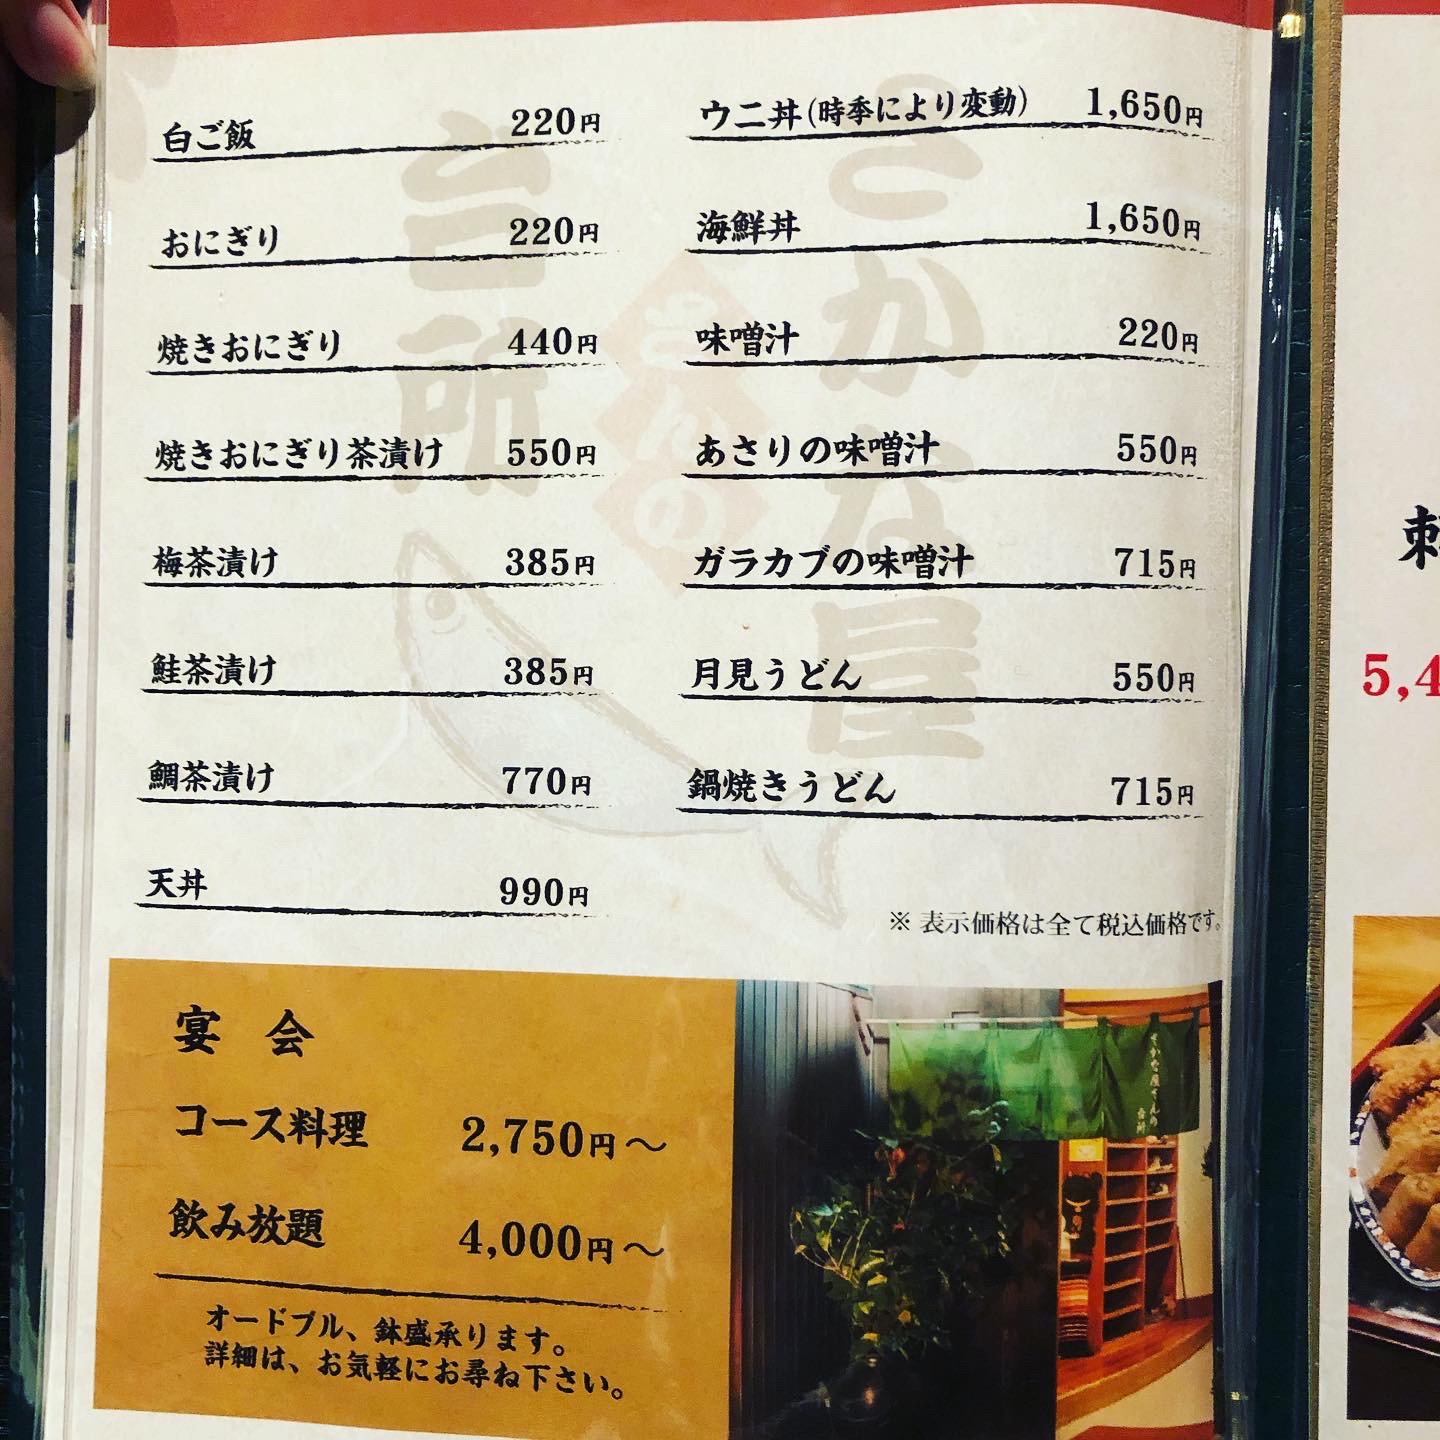 白ご飯 220円
おにぎり 220円
焼きおにぎり 440円
焼きおにぎり茶漬け 550円
梅茶漬け 385円
鮭茶漬け 385円
鯛茶漬け 770円
天丼 990円
ウニ丼(時季により変動) 1,650円
海鮮丼 1,650円
味噌汁 220円
あさりの味噌汁 550円
ガラカブの味噌汁 715円
月見うどん 550円
鍋焼きうどん 715円
※ 表示価格は全て税込価格です。
さかな屋
さんの
台所
宴 会
コース料理 2,750円〜
飲み放題 4,000円〜
オードブル、鉢盛承ります。
詳細は、お気軽にお尋ね下さい。
さかな屋さんの
台所
5,4